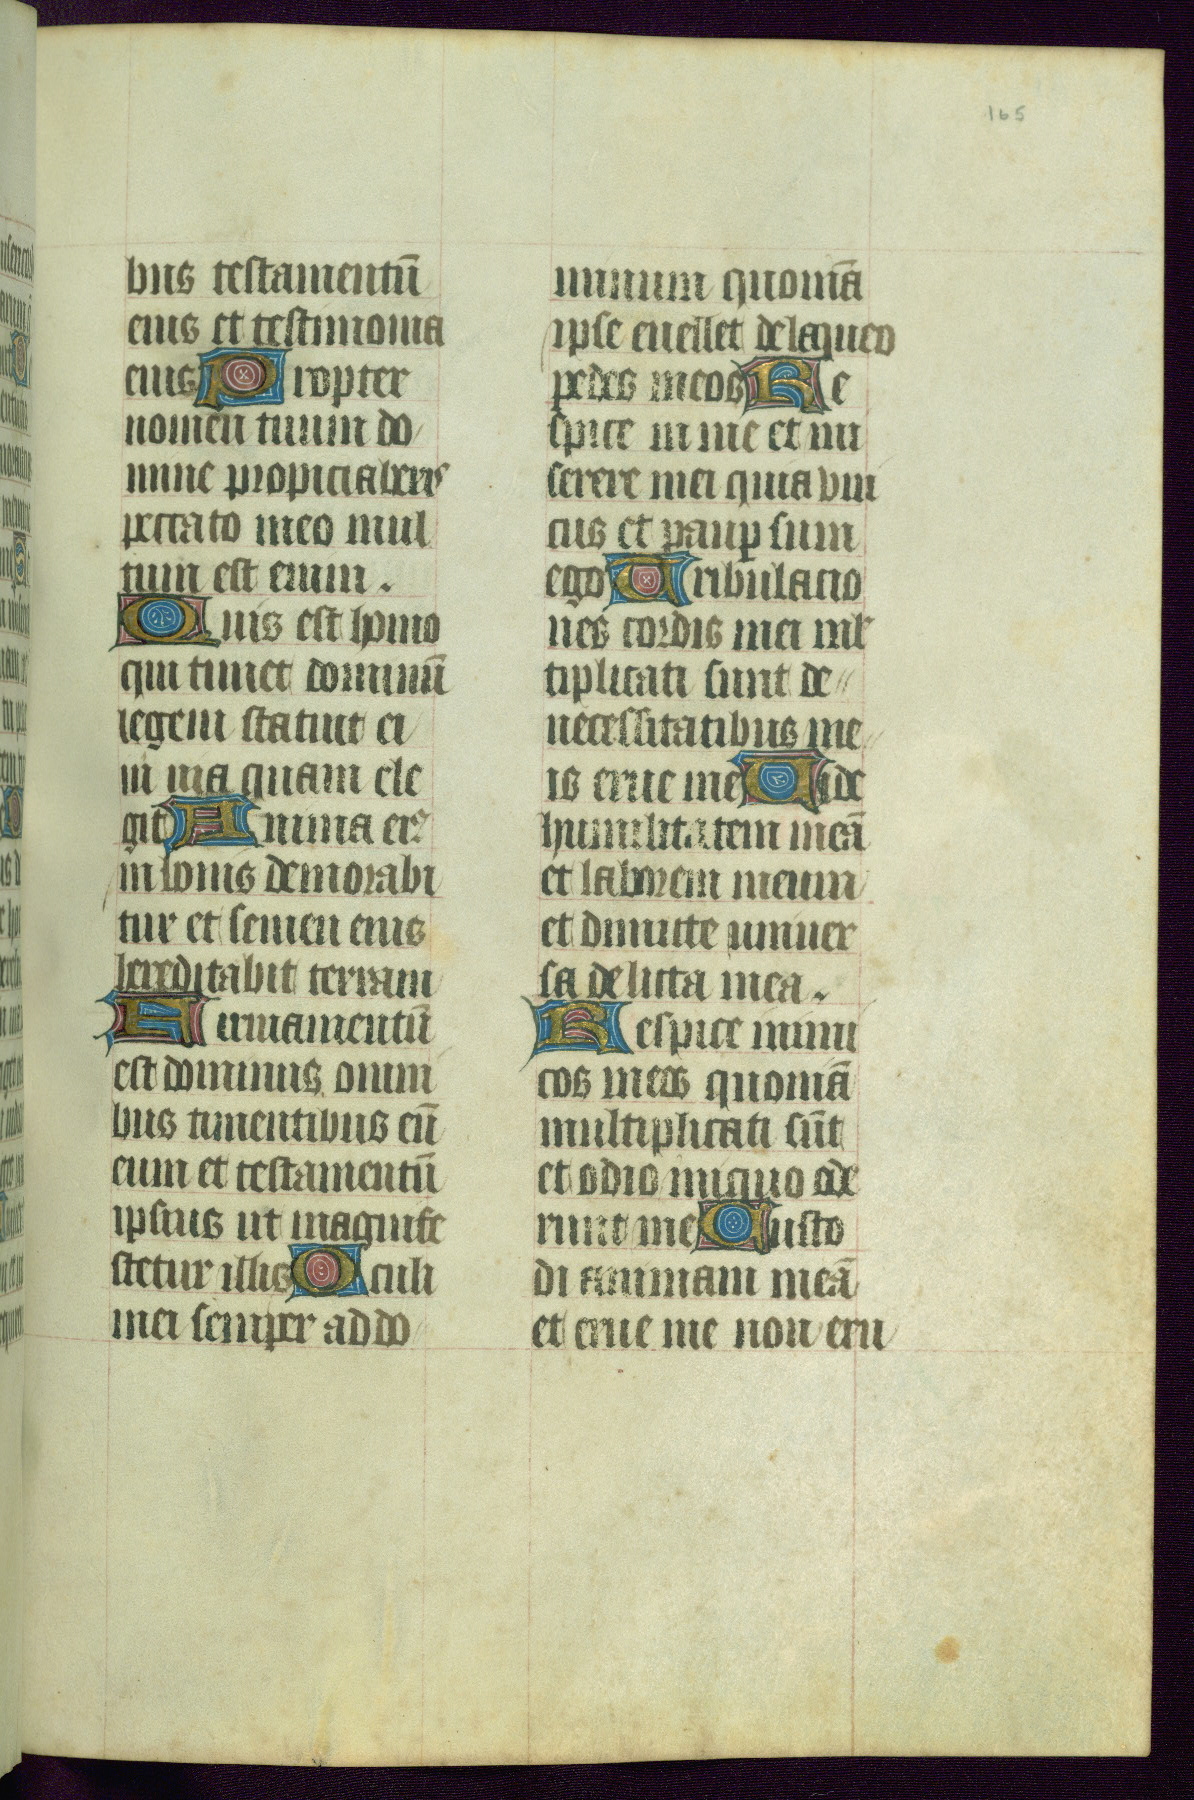 165
bus testamentū
eius et testimonia
eius Propter
nomen tuum do
mine propiciaberis
peccato meo mul
tum est enim .
Quis est homo
qui timet dominū
legem statuit ei
in uia quam ele
git Anima eiꝰ
in bonis demorabi
tur et semen eius
hereditabit terram
Firmamentū
est dominus omni
bus timentibus eū
eum et testamentū
ipsius ut manife
stetur illis Oculi
mei semper ad do
minum quoniā
ipse euellet de laqueo
pedes meos Re
spice in me et mi
serere mei quia vni
cus et paup sum
ego Tribulacio
nes cordis mei ml
tiplicati sunt de
necessitatibus me
is erue me Vide
humilitatem meā
et laborem meum
et dimitte uniuer
sa delicta mea .
Respice inimi
cos meos quoniā
multiplicati sūt
et odio iniquo ode
runt me Custo
di animam meā
et erue me non eru